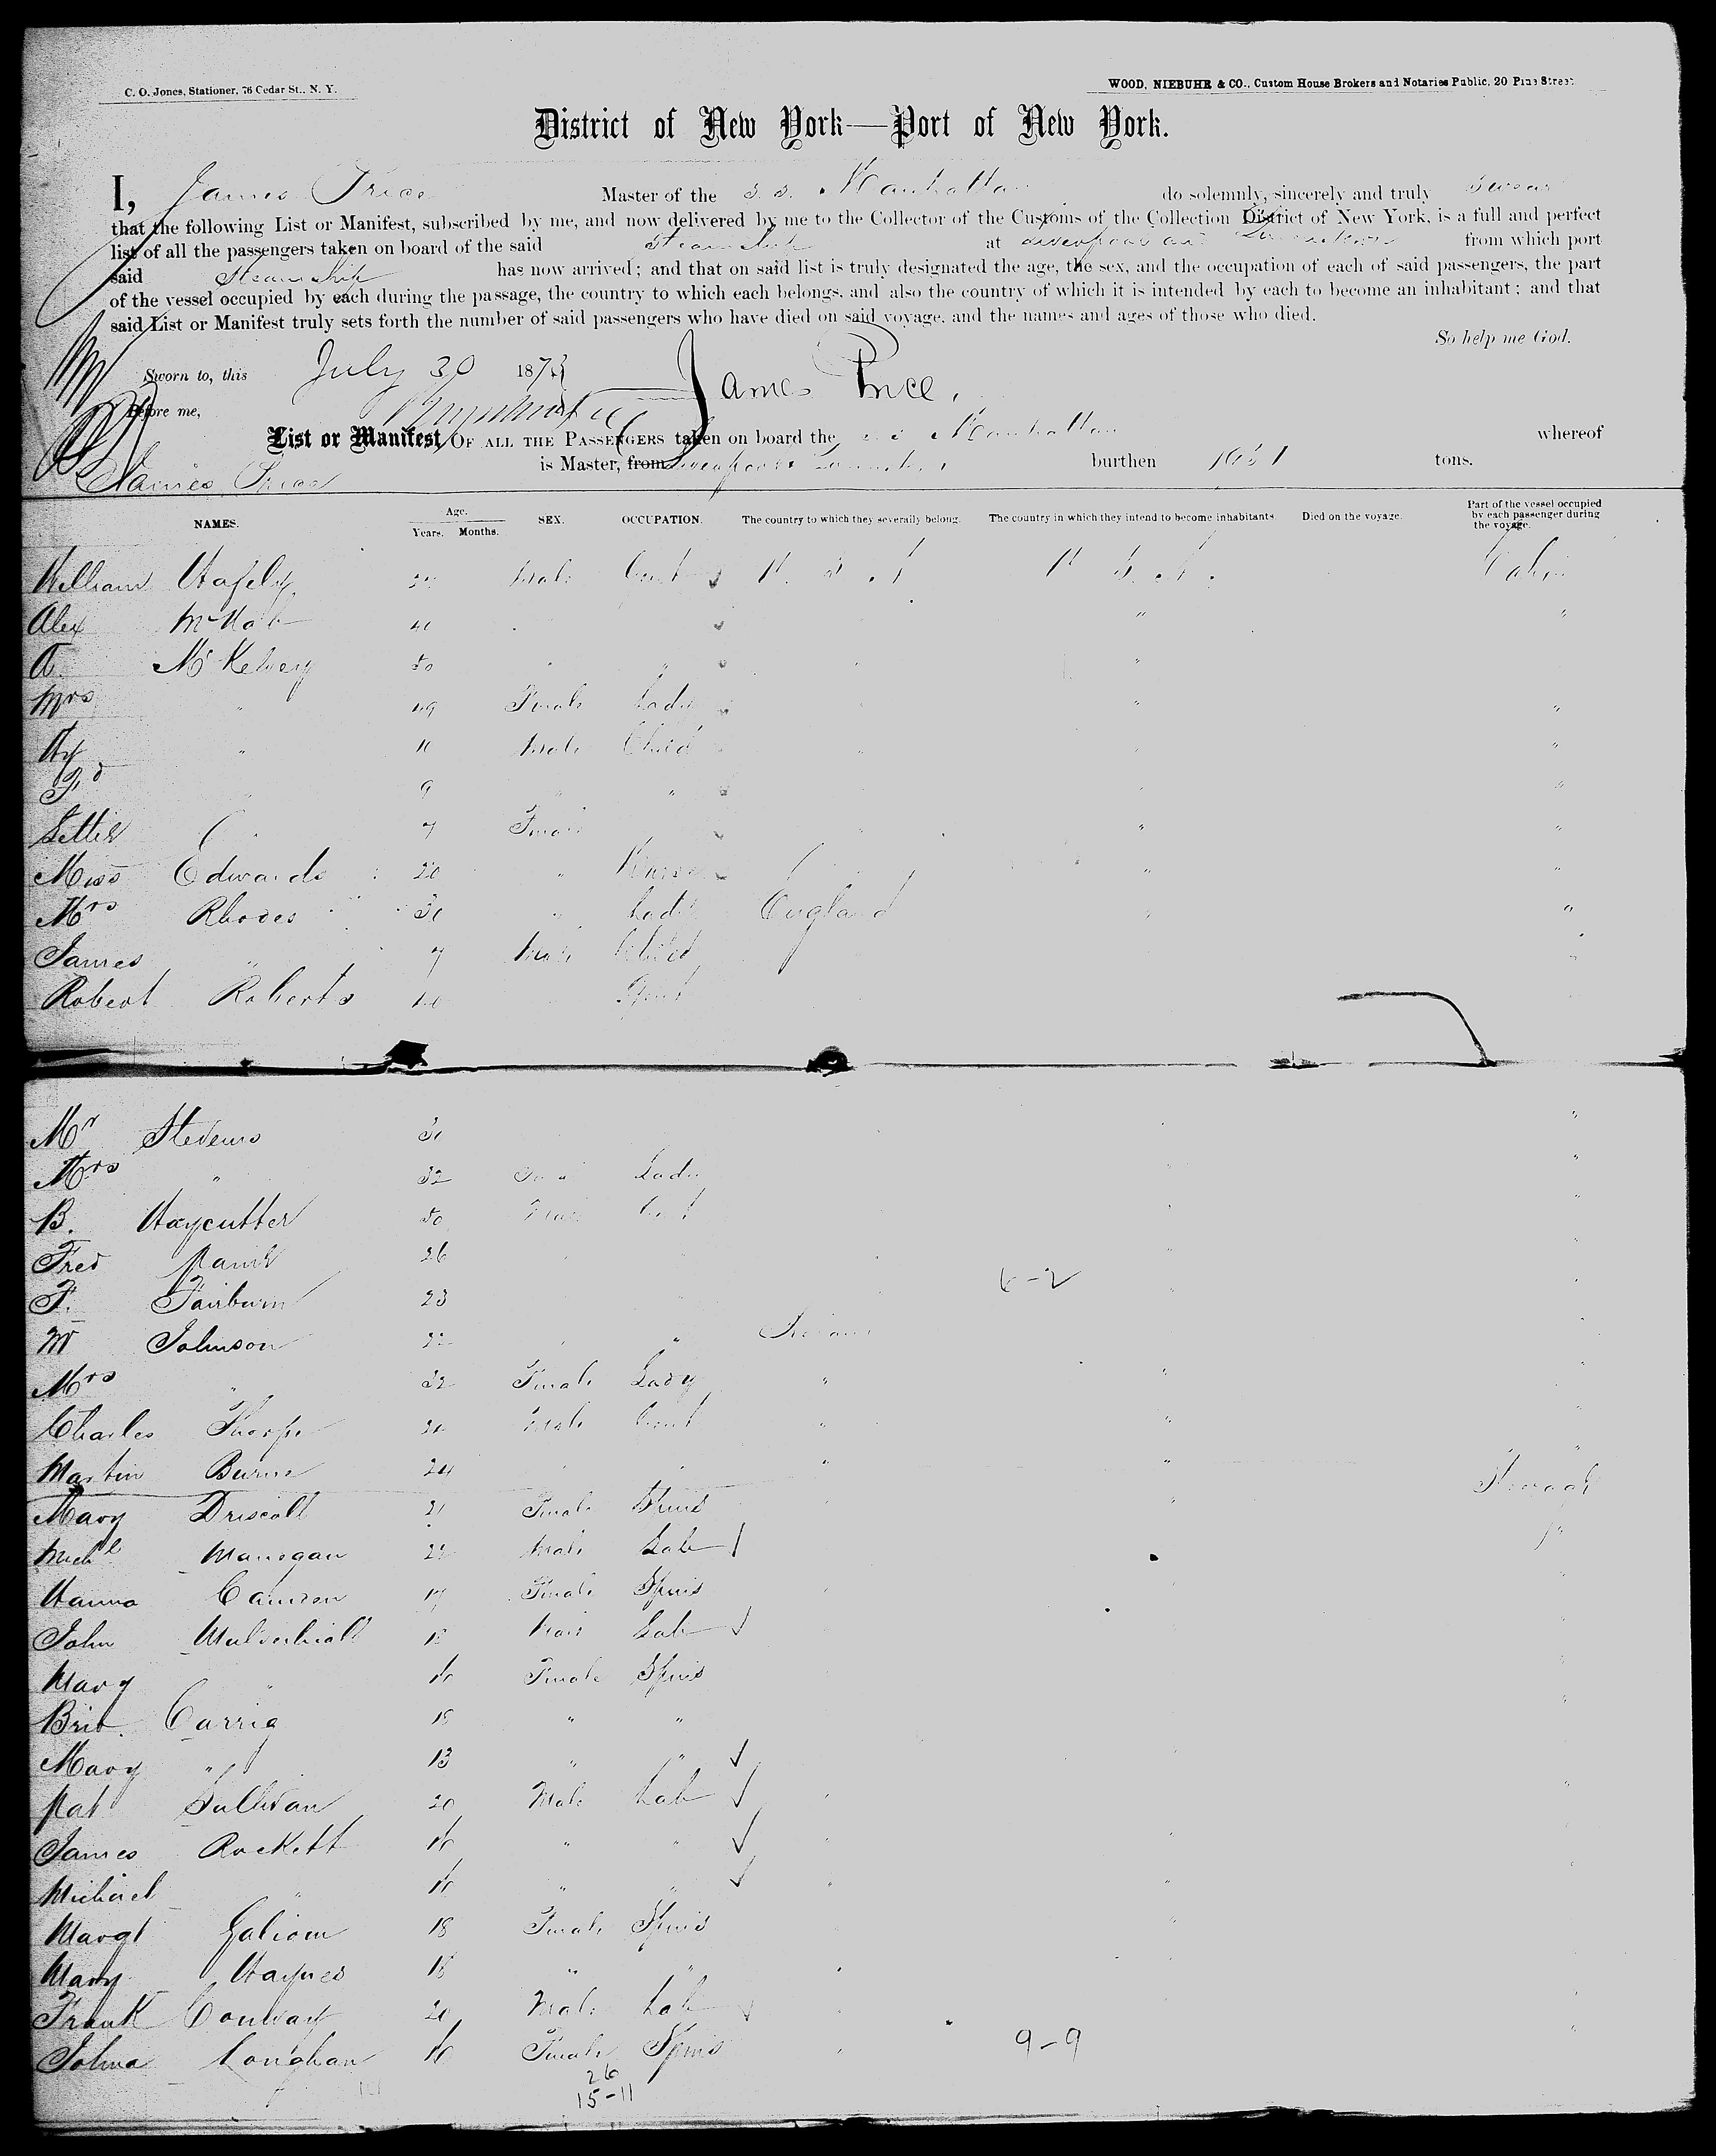 C. O. Jones, Stationer, 76 Cedar St., N. Y.
WOOD, NIEBUHR & CO., Custom House Brokers and Notaries Public, 20 Pine Street.
District of New York—Port of New York.
I, James Price Master of the S. S. Manhattan do solemnly, sincerely and truly swear
that the following List or Manifest, subscribed by me, and now delivered by me to the Collector of the Customs of the Collection District of New York, is a full and perfect
list of all the passengers taken on board of the said Steam Ship at Liverpool and Queenstown from which port
said Steam Ship has now arrived; and that on said list is truly designated the age, the sex, and the occupation of each of said passengers, the part
of the vessel occupied by each during the passage, the country to which each belongs, and also the country of which it is intended by each to become an inhabitant; and that
said List or Manifest truly sets forth the number of said passengers who have died on said voyage, and the names and ages of those who died.
So help me God.
Sworn to, this July 30 1873 James Price.
Before me,
List or Manifest OF ALL THE PASSENGERS taken on board the S. S. Manhattan whereof
James Price is Master, from Liverpool & burthen tons.
NAMES. Age. Years. Months. SEX. OCCUPATION. The country to which they severally belong. The country in which they intend to become inhabitants. Died on the voyage. Part of the vessel occupied by each passenger during the voyage.
William Male Gent U. S. A U. S. A. Cabin
Alex McNab "
A. McKelvey 50 " " "
Mrs " 49 Female Lady " "
" Male Child " "
" 9 " " "
Lettie " 7 Female " "
Miss Edwards 20 " Nurse " "
Mrs Rhodes " Lady England " "
James " 7 Male Child "
Robert Roberts Gent
Mr Stevens "
Mrs " 32 Lady "
B. Haycutter 50 Gent "
Fred 26
F. Fairburn 23 6-2
Mr Johnson "
Mrs " 32 Female Lady " "
Charles Thorpe Male Gent " "
Martin Burns 24 " " "
Mary Driscoll 21 Female Spins " Steerage
Michl Manogan Male Lab "
Hanna Female Spins
John Lab
Mary " 16 Female Spins
Brid. Carrig 18 " "
Mary " 13 " "
Pat Sullivan 20 Male Lab
James Rockett 16 " "
Michael " " "
Margt 18 Female Spins
Mary Haynes 18 " "
Frank Conway 20 Male Lab
Longhan 16 Female Spins 9-9
26
15-11